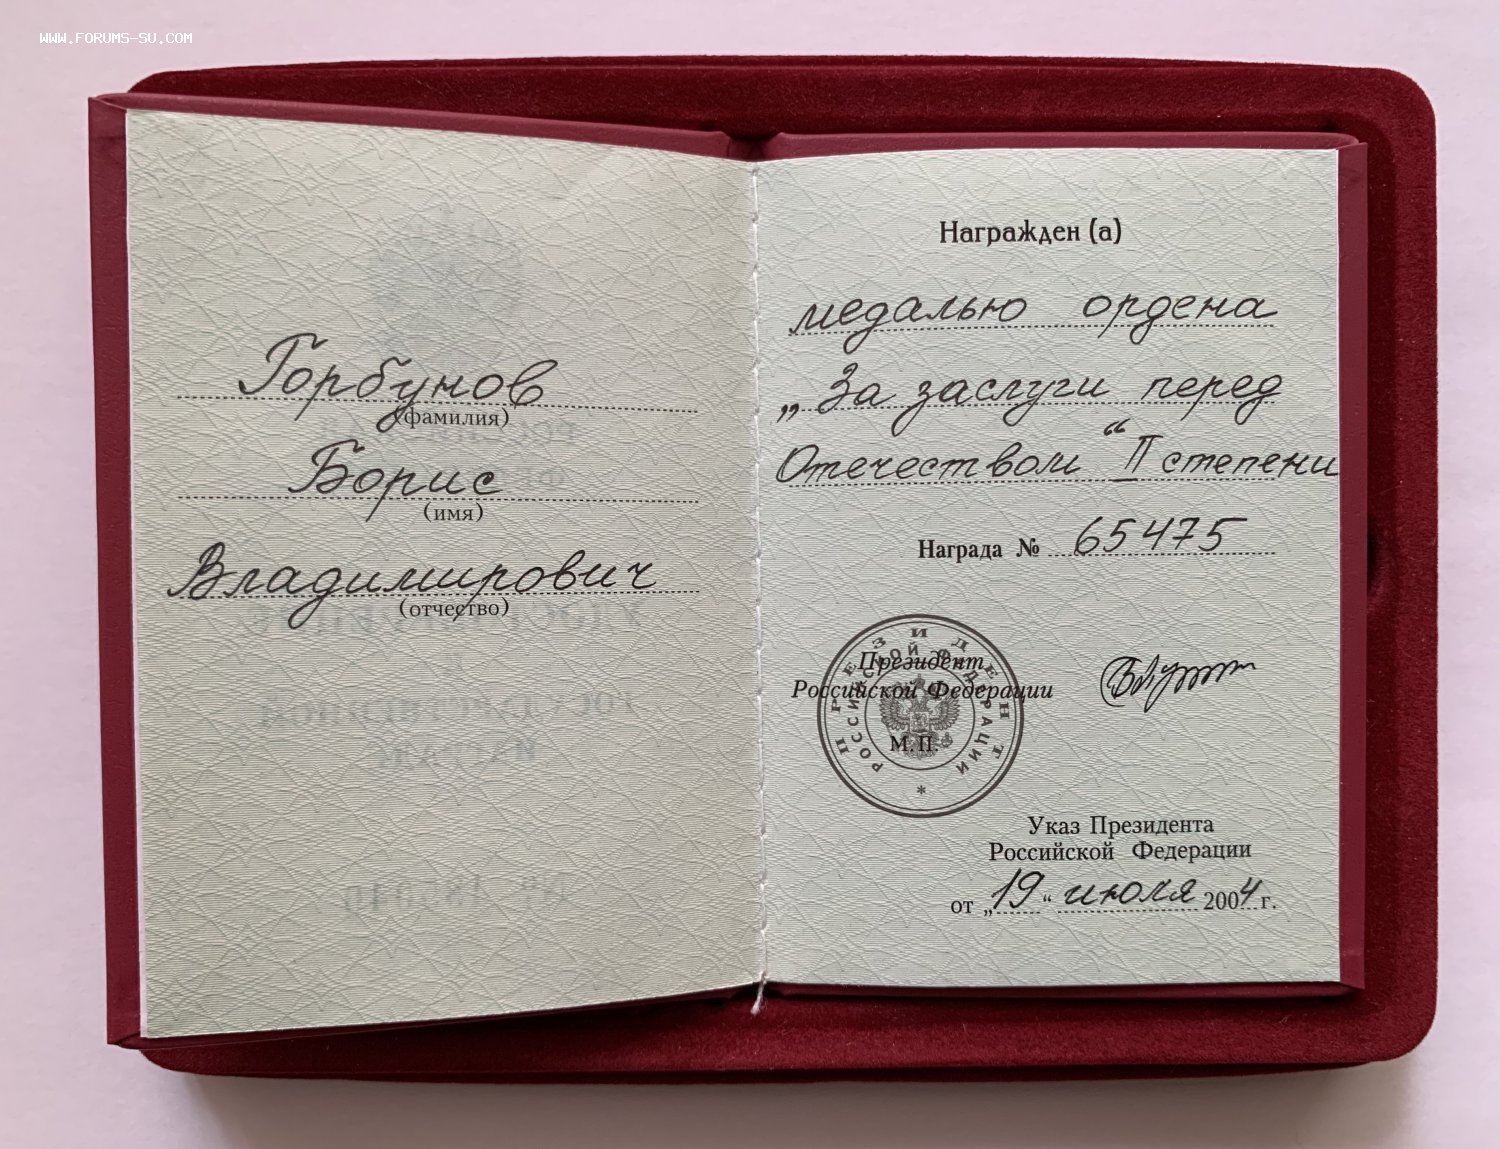 WWW.FORUMS-SU.COM
Горбунов
(фамилия)
Борис
(имя)
Владимирович
(отчество)
Награжден (а)
медалью ордена
„За заслуги перед
Отечеством“ II степени
Награда № 65475
Президент
Российской Федерации
М.П.
ПРЕЗИДЕНТ
РОССИЙСКОЙ ФЕДЕРАЦИИ
*
Указ Президента
Российской Федерации
от „19“ июля 2004 г.